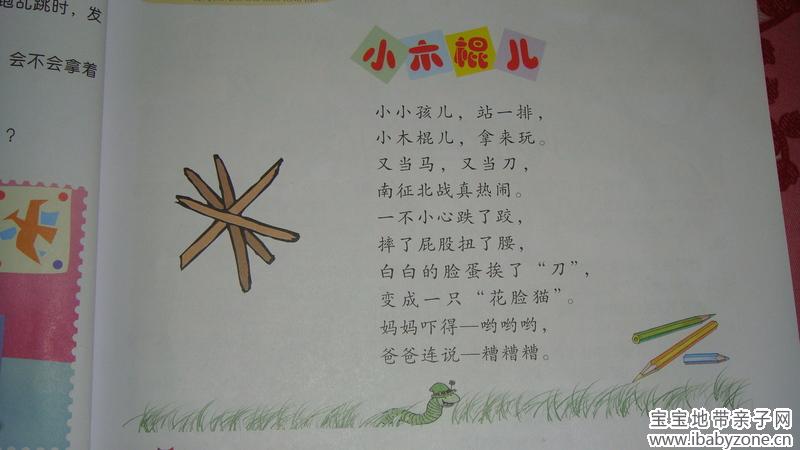 跑乱跳时，发
会不会拿着
？
小木棍儿
小小孩儿，站一排，
小木棍儿，拿来玩。
又当马，又当刀，
南征北战真热闹。
一不小心跌了跤，
摔了屁股扭了腰，
白白的脸蛋挨了“刀”，
变成一只“花脸猫”。
妈妈吓得—哟哟哟，
爸爸连说—糟糟糟。
宝宝地带亲子网
www.ibabyzone.cn